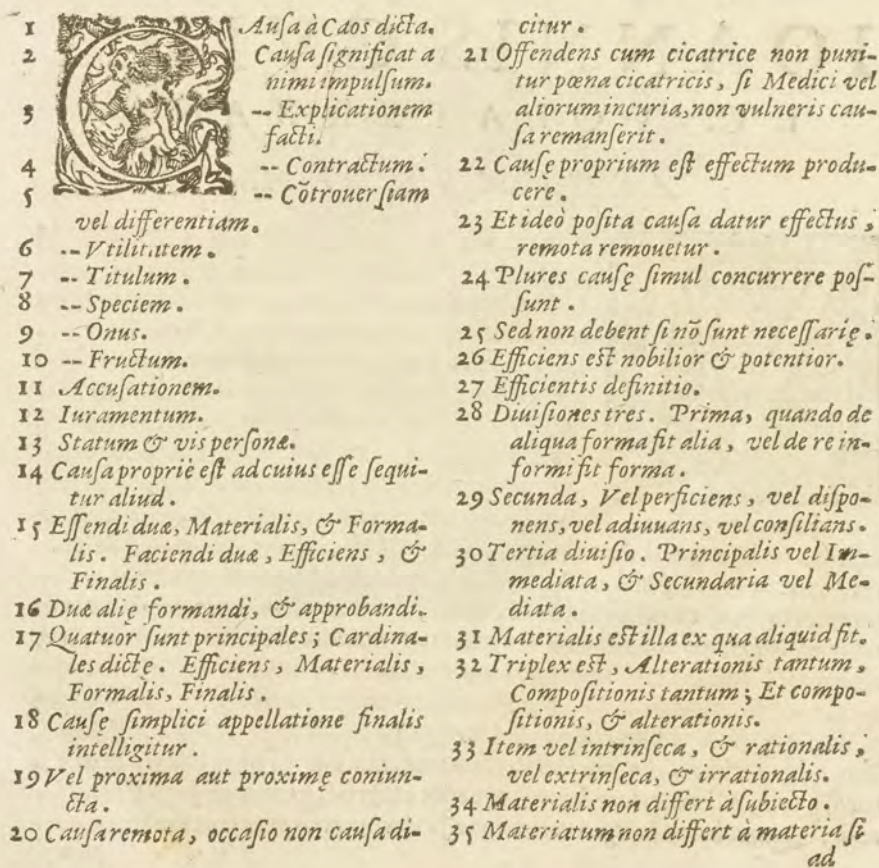 1 CAusa à Caos dicta.
2 Causa significat a
nimi impulsum.
3 -- Explicationem
facti.
4 -- Contractum.
5 -- Cõtrouersiam
vel differentiam.
6 -- Vtilitatem.
7 -- Titulum.
8 -- Speciem.
9 -- Onus.
10 -- Fructum.
11 Accusationem.
12 Iuramentum.
13 Statum & vis personæ.
14 Causa propriè est ad cuius esse sequi-
tur aliud.
15 Essendi duæ, Materialis, & Forma-
lis. Faciendi duæ, Efficiens, &
Finalis.
16 Duæ alię formandi, & approbandi.
17 Quatuor sunt principales; Cardina-
les dictę. Efficiens, Materialis,
Formalis, Finalis.
18 Causę simplici appellatione finalis
intelligitur.
19 Vel proxima aut proximę coniun-
cta.
20 Causa remota, occasio non causa di-
citur.
21 Offendens cum cicatrice non puni-
tur pœna cicatricis, si Medici vel
aliorum incuria, non vulneris cau-
sa remanserit.
22 Causę proprium est effectum produ-
cere.
23 Et ideò posita causa datur effectus,
remota remouetur.
24 Plures causę simul concurrere pos-
sunt.
25 Sed non debent si nõ sunt necessarię.
26 Efficiens est nobilior & potentior.
27 Efficientis definitio.
28 Diuisiones tres. Prima, quando de
aliqua forma fit alia, vel de re in-
formi fit forma.
29 Secunda, Vel perficiens, vel dispo-
nens, vel adiuuans, vel consilians.
30 Tertia diuisio. Principalis vel Im-
mediata, & Secundaria vel Me-
diata.
31 Materialis est illa ex qua aliquid fit.
32 Triplex est, Alterationis tantum,
Compositionis tantum; Et compo-
sitionis, & alterationis.
33 Item vel intrinseca, & rationalis,
vel extrinseca, & irrationalis.
34 Materialis non differt à subiecto.
35 Materiatum non differt à materia si
ad